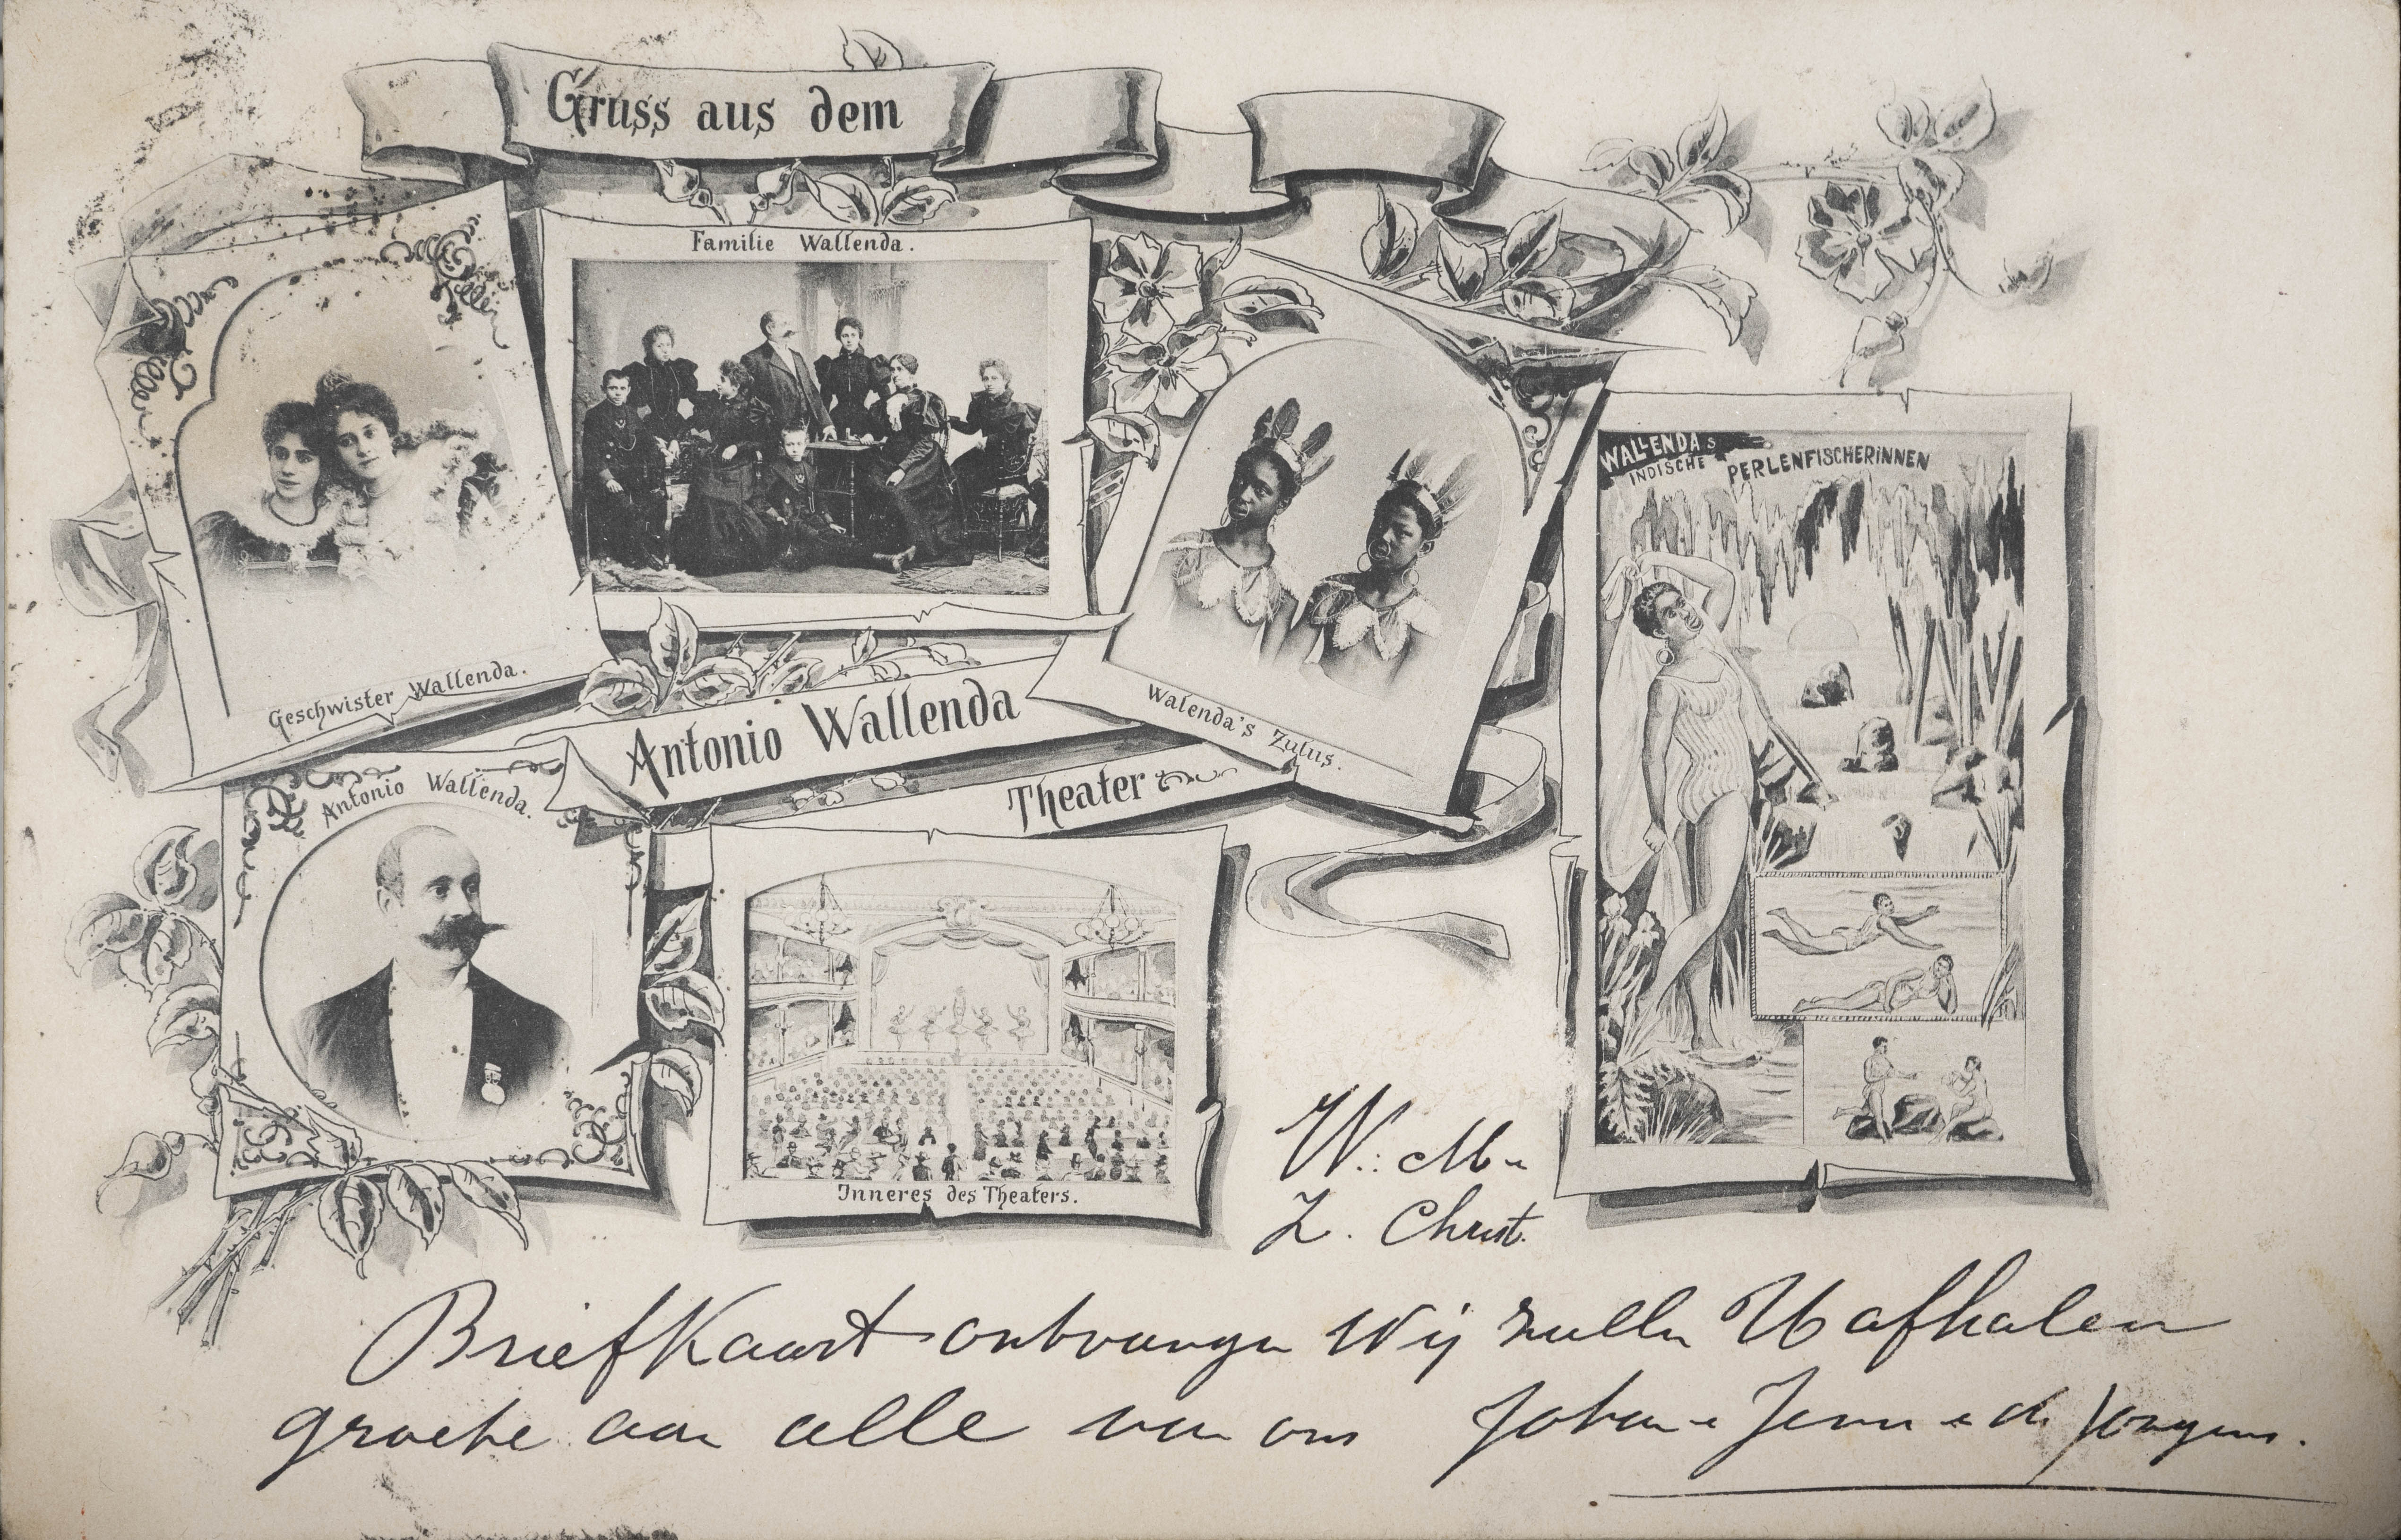 Gruss aus dem
Familie Wallenda.
Geschwister Wallenda.
Walenda's Zulus.
WALLENDAs
INDISCHE PERLENFISCHERINNEN
Antonio Wallenda
Theater
Antonio Wallenda.
Inneres des Theaters.
W.
Z. Christ.
Briefkaart ontvangen Wij zullen U afhalen
groete aan alle van ons Johan